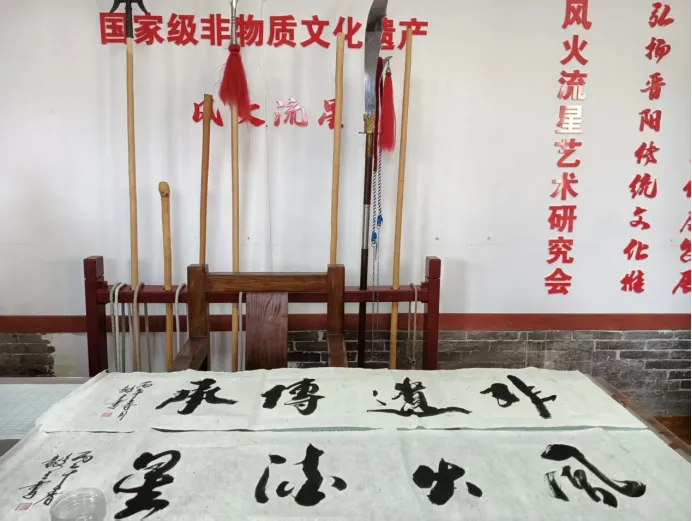 国家级非物质文化遗产
风火流星
风火流星艺术研究会
弘扬晋阳传统文化推
非遗傳承
風火流星